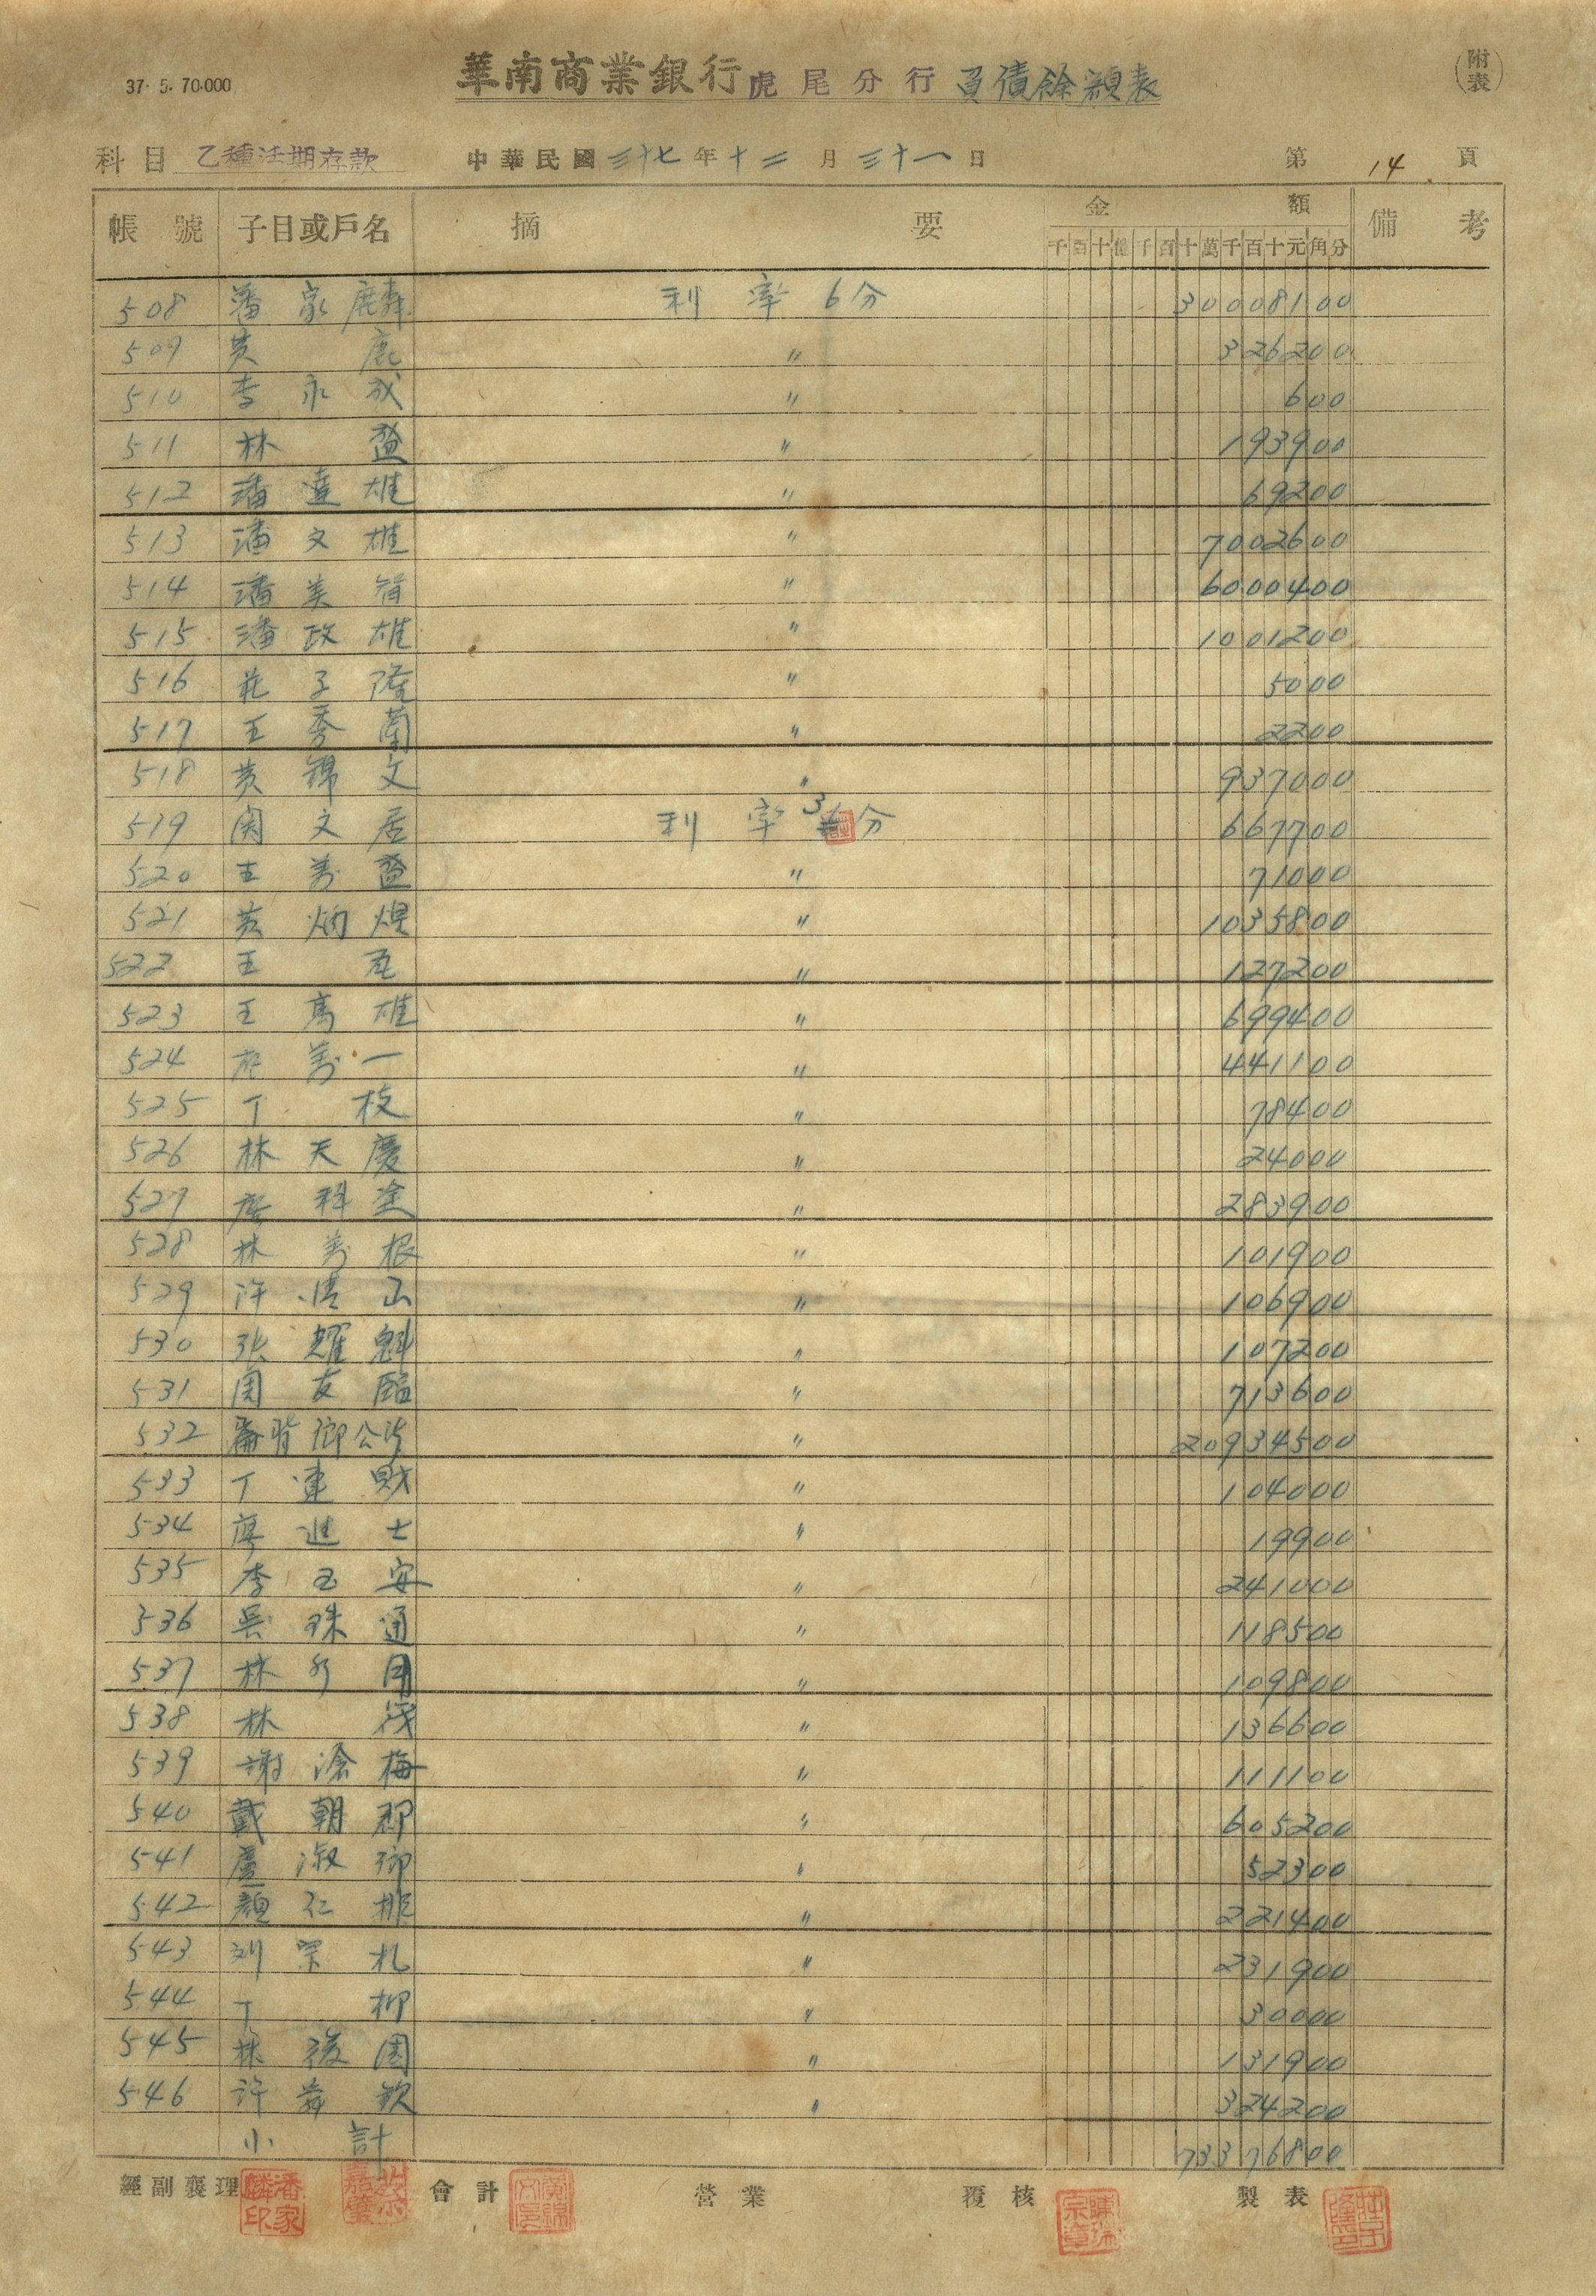 37. 5. 70.000
華南商業銀行虎尾分行負債餘額表
(附表)
科目 乙種活期存款 中華民國三十七年十二月三十一日 第14頁
帳號 子目或戶名 摘要 金額 備考
千百十億千百十萬千百十元角分
508 潘家麟 利率6分 30008100
509 黃 鹿 〃 326200
510 李永成 〃 600
511 林 盈 〃 193900
512 潘達雄 〃 69200
513 潘文雄 〃 7002600
514 潘美智 〃 6000400
515 潘政雄 〃 1001200
516 莊子隆 〃 5000
517 王秀蘭 〃 2200
518 黃錦文 〃 937000
519 関文居 利率3分 667700
520 王萬盈 〃 71000
521 黃炳煌 〃 1035800
522 王 〃 127200
523 王萬雄 〃 699400
524 萬一 〃 441100
525 丁 枝 〃 78400
526 林天慶 〃 24000
527 廖科塗 〃 283900
528 林萬根 〃 101900
529 許 山 〃 106900
530 張耀魁 〃 107200
531 周友臨 〃 713600
532 崙背鄉公所 〃 20934500
533 丁連財 〃 104000
534 廖進士 〃 19900
535 李玉安 〃 241000
536 吳珠通 〃 118500
537 林 〃 109800
538 林 茂 〃 136600
539 謝滄梅 〃 111100
540 戴朝郡 〃 605200
541 盧淑卿 〃 52300
542 顏仁 〃 221400
543 刘榮札 〃 231900
544 丁 柳 〃 30000
545 林後園 〃 131900
546 許 欽 〃 324200
小計 73376800
經副襄理 潘家麟印 會計 營業 覆核 製表